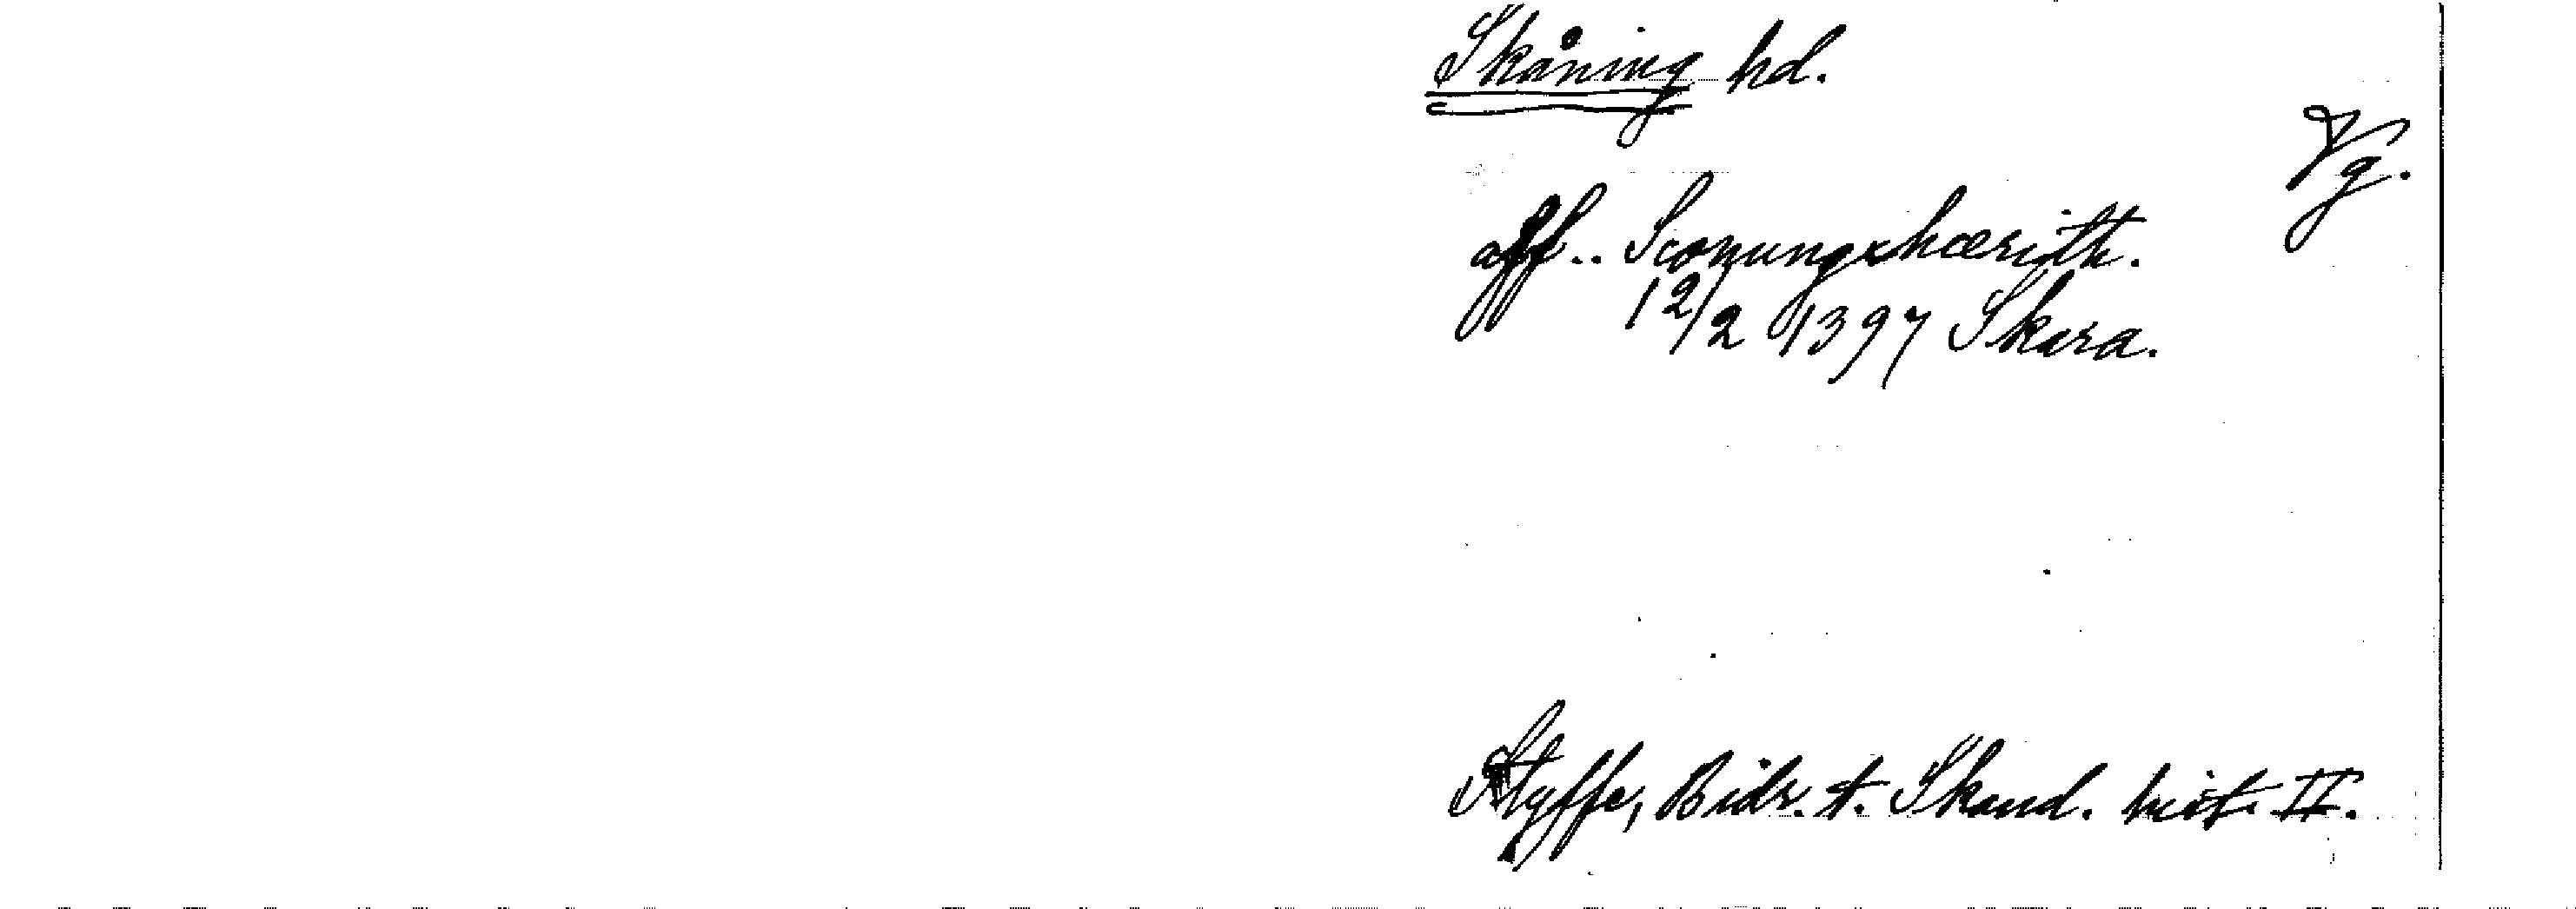 Skåning hd.
Vg.
aff.. Sconungxhærith.
12/2 1397 Skara.
Styffe, Bidr. t. Skand. hist. II.